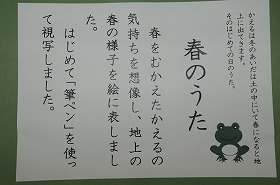 かえるは冬のあいだは土の中にいて春になると地
上に出てきます。
そのはじめての日のうた。
春のうた
春をむかえたかえるの
気持ちを想像し、地上の
春の様子を絵に表しまし
た。
はじめて「筆ペン」を使っ
て視写しました。